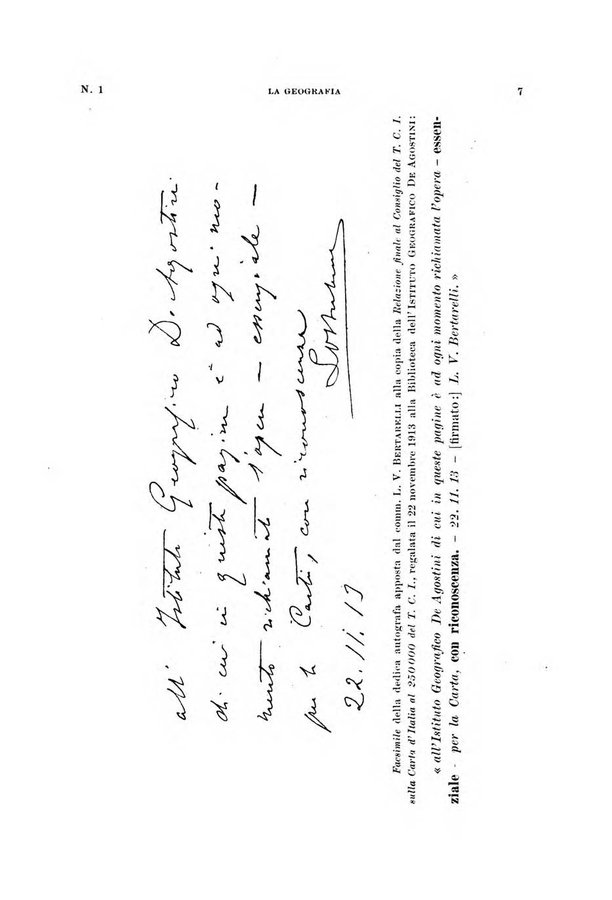 N. 1 LA GEOGRAFIA 7
all' Istituto Geografico De Agostini
di cui in queste pagine è ad ogni mo-
mento richiamata l'opera — essenziale —
per la Carta, con riconoscenza
22.11.13 LVBertarelli
Facsimile della dedica autografa apposta dal comm. L. V. BERTARELLI alla copia della Relazione finale al Consiglio del T. C. I.
sulla Carta d'Italia al 250000 del T. C. I., regalata il 22 novembre 1913 alla Biblioteca dell'ISTITUTO GEOGRAFICO DE AGOSTINI:
« all'Istituto Geografico De Agostini di cui in queste pagine è ad ogni momento richiamata l'opera – essen-
ziale - per la Carta, con riconoscenza. – 22. 11. 13 – [firmato:] L. V. Bertarelli. »